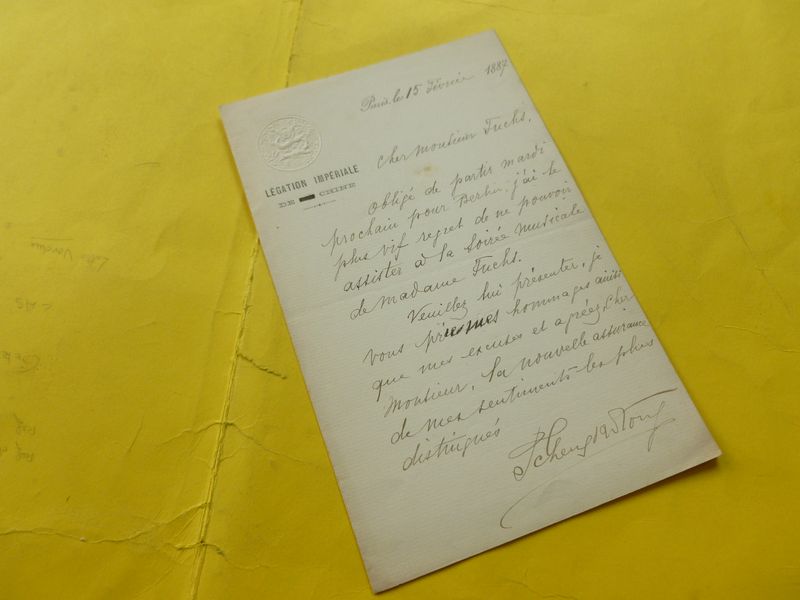 Paris, le 15 Février 1887
LÉGATION IMPÉRIALE
DE CHINE
Cher Monsieur Fuchs,
obligé de partir mardi
prochain pour Berlin, j'ai le
plus vif regret de ne pouvoir
assister à la Soirée Musicale
de Madame Fuchs.
Veuillez lui présenter, je
vous prie mes hommages ainsi
que mes excuses et agréez Cher
Monsieur, la nouvelle assurance
de mes sentiments les plus
distingués
Tcheng Ki Tong